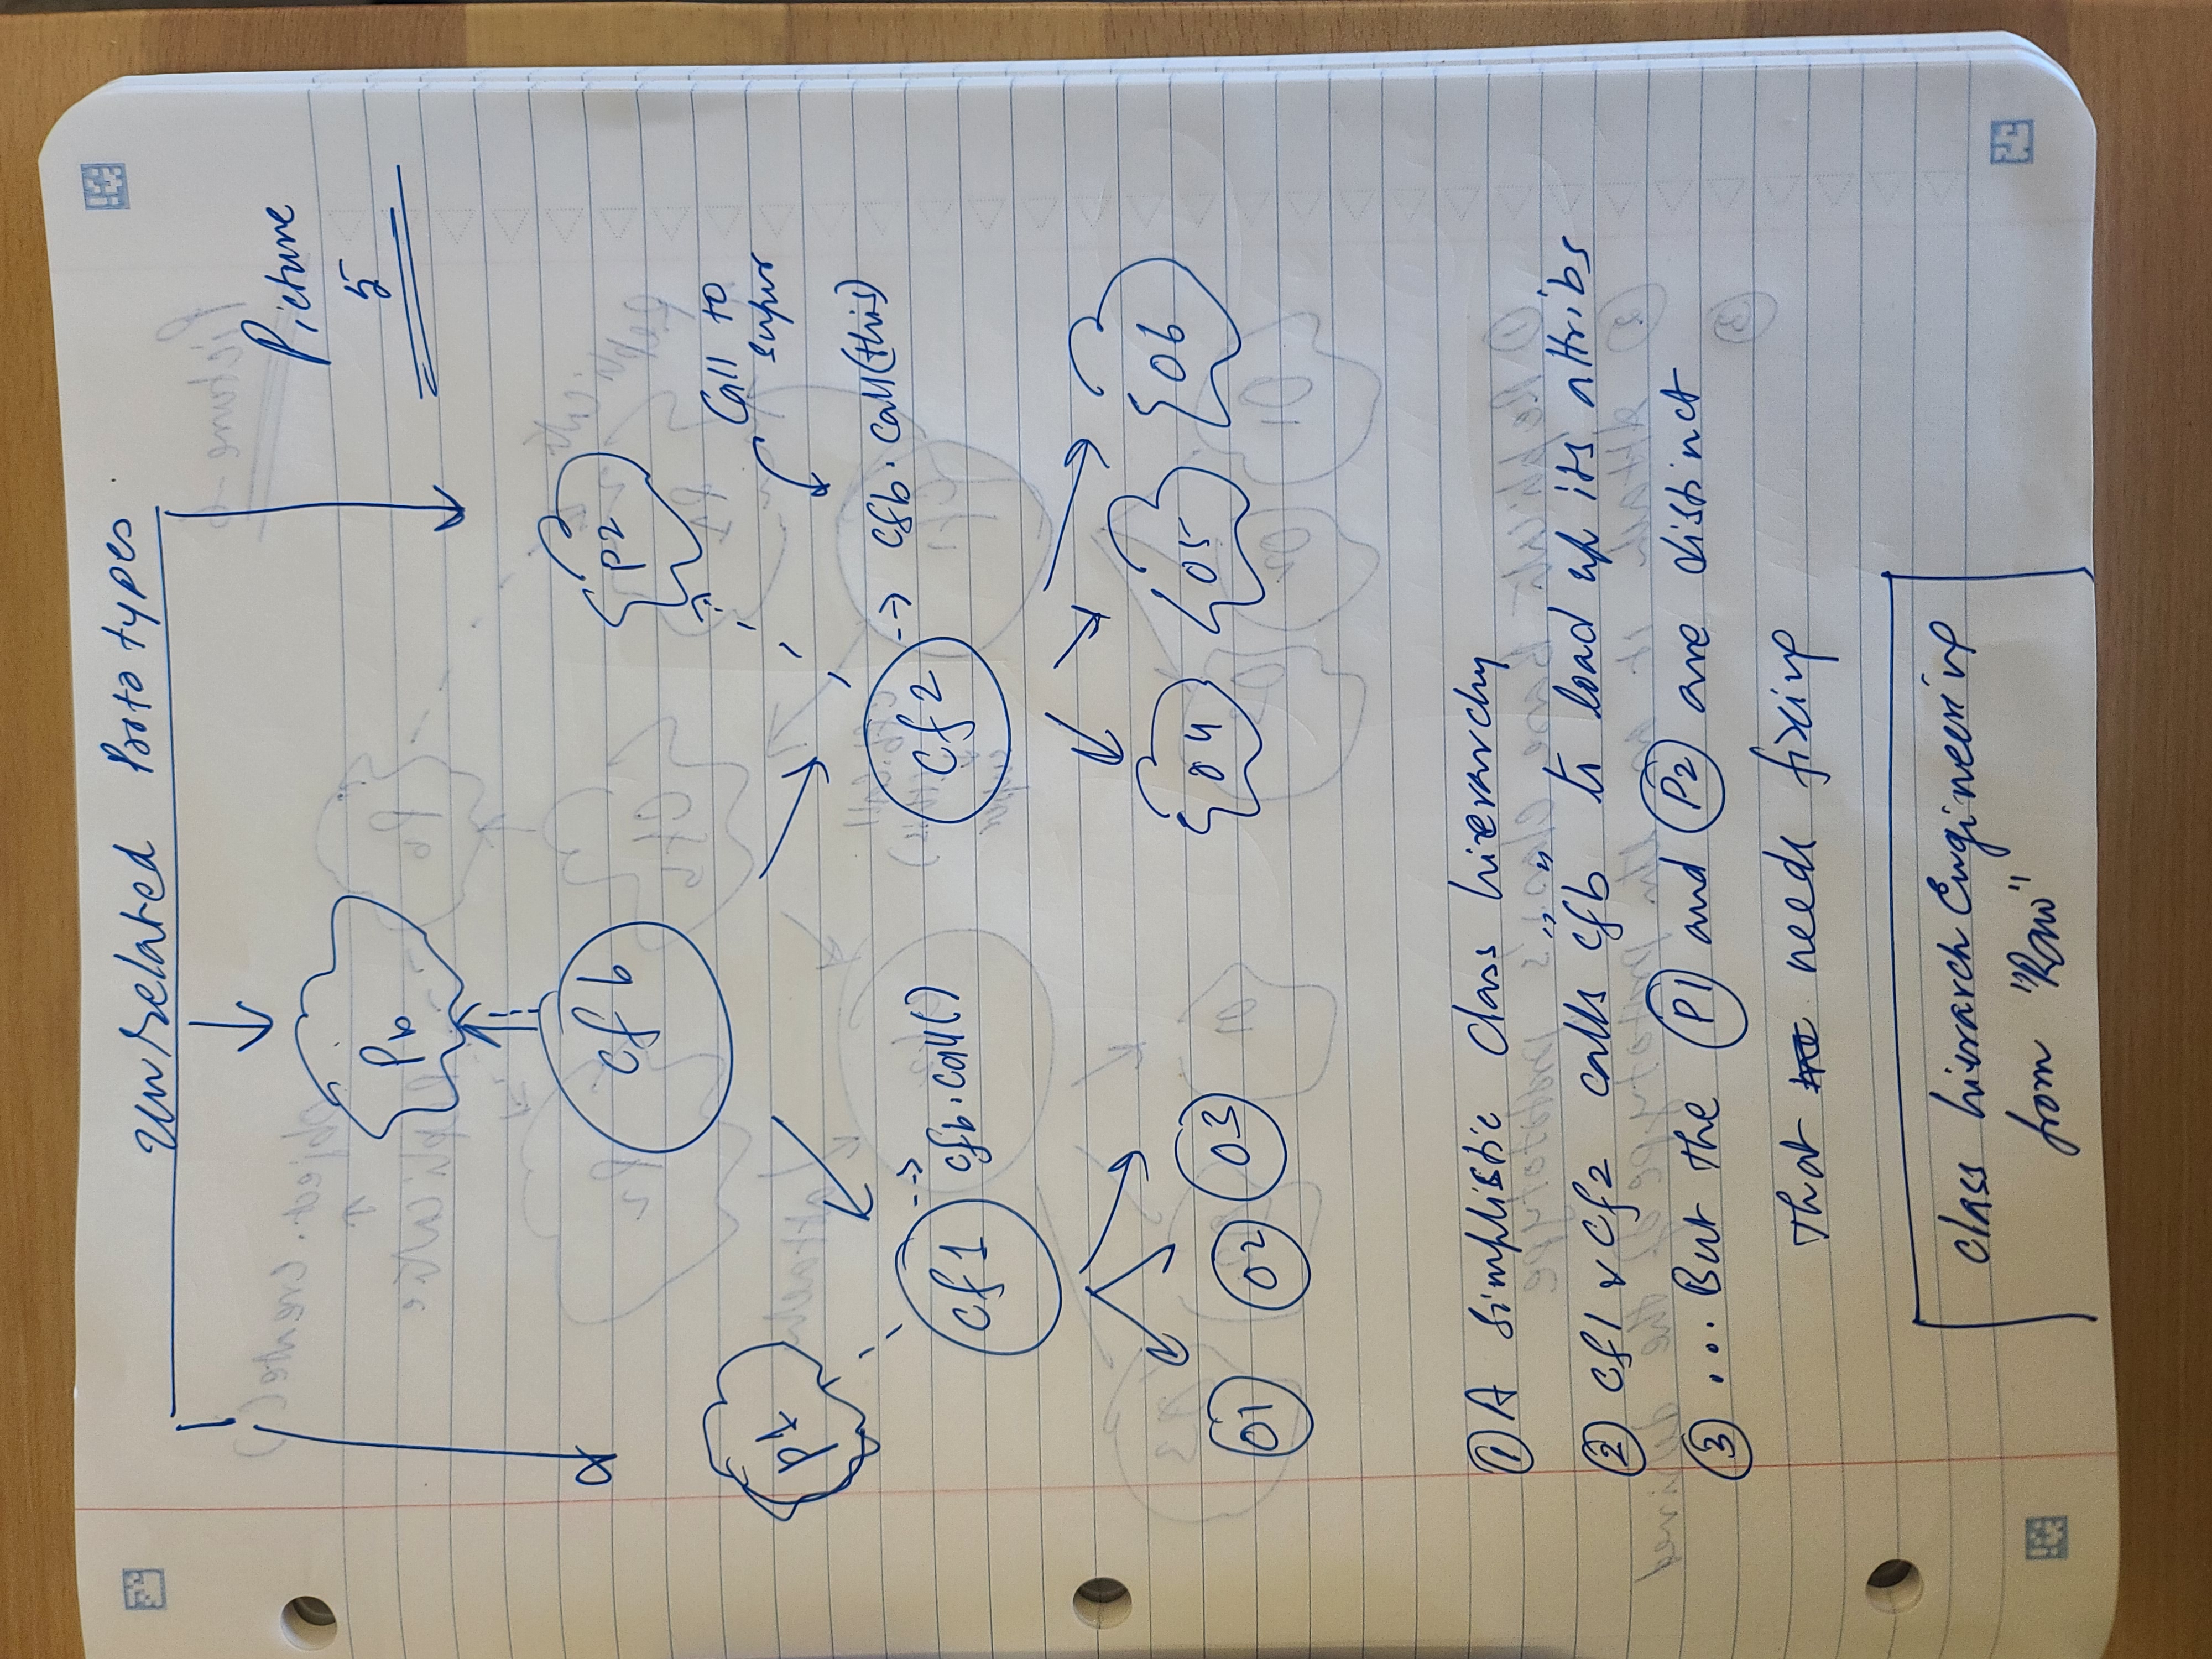 Unrelated Prototypes
Picture
5
Pb
cfb
P2
P1
Call to
super
cf1
cfb.call()
cf2
cfb.call(this)
O1
O2
O3
O4
O5
O6
① A simplistic class hierarchy
② cf1 & cf2 calls "cfb" to load up its attribs
③ ... But the P1 and P2 are distinct
That needs fixing
class hierarch Engineering
from "Raw"